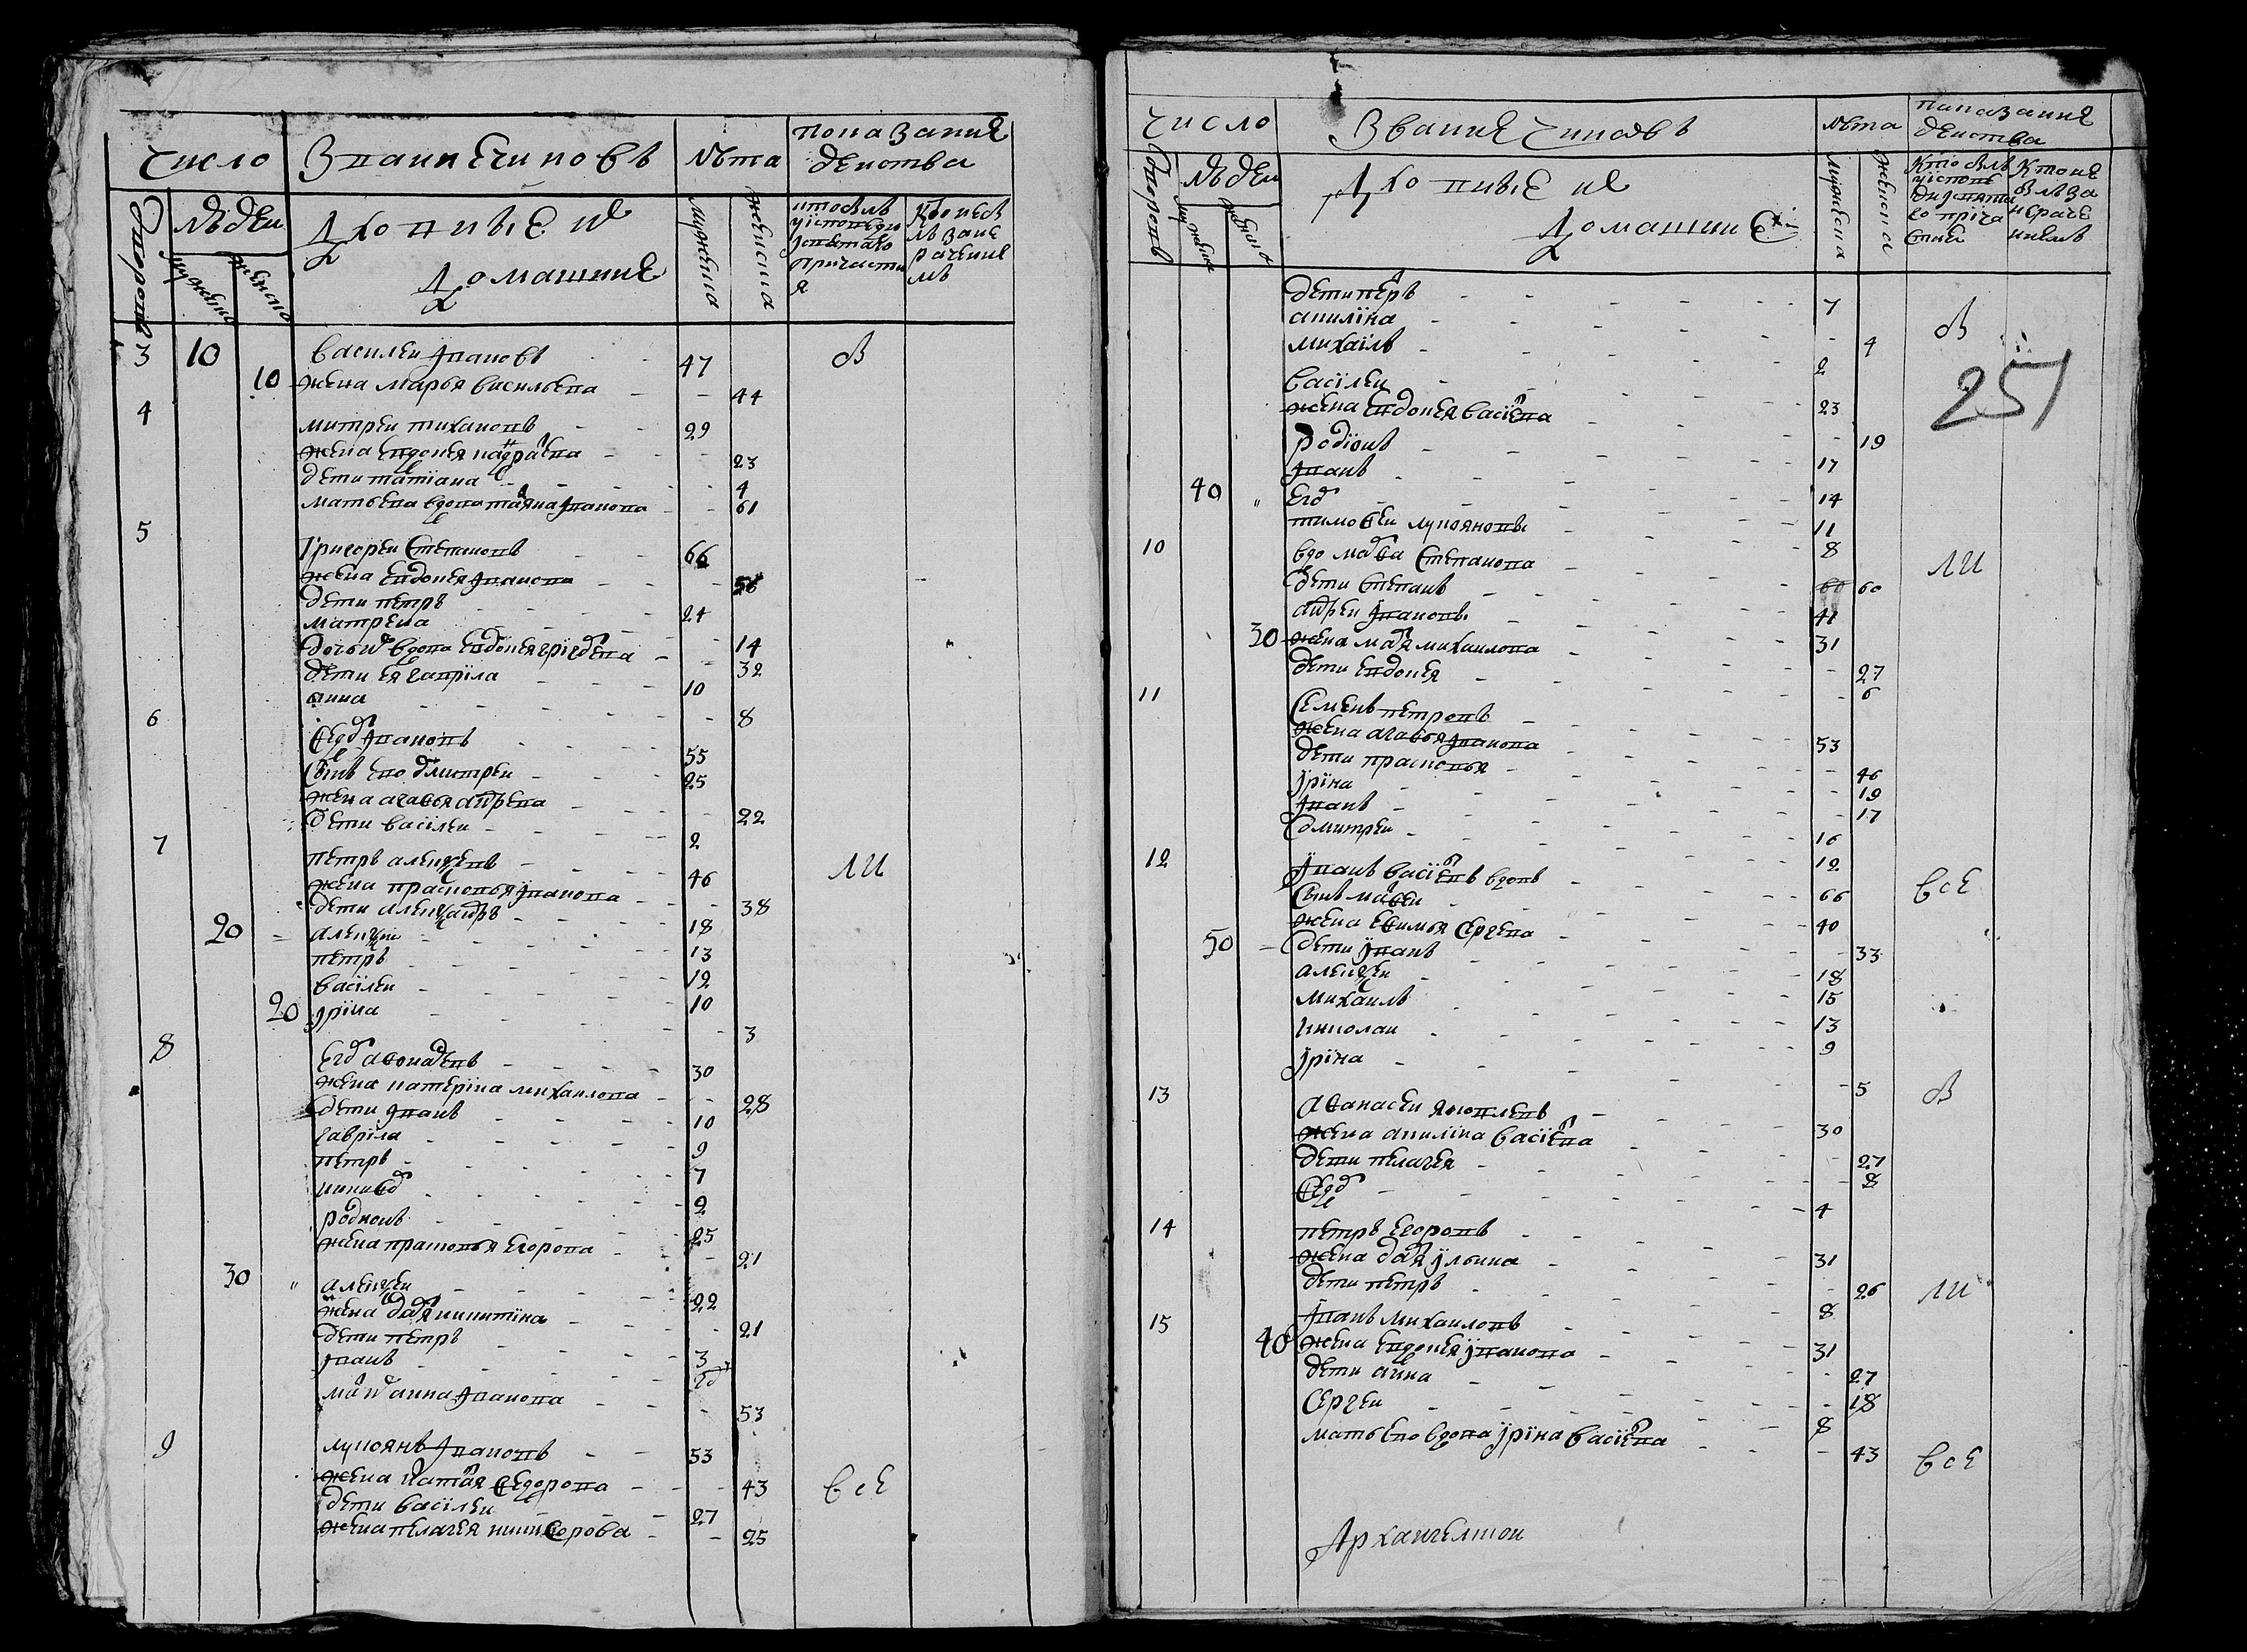 число
Звание чиновъ
лѣта
показание
действа
дворовъ
людеи
мужеска
женска
Духовные и
Домашние
мужеска
женска
3 10 Василеи Ивановъ 47 В
10 жена Марья Васильева 44
4
Митреи Тихановъ 29
жена Евдокея Кадратева 23
дети Татiана 4
мать ева вдова Татяна Иванова 61
5
Григореи Степановъ 66
жена Евдокея Иванова 58
дети Петръ 24
Матрена 14
дочь вдова Евдокея Григорева 32
дети ея Гаврiла 10
Анна 8
6
Ѳедоръ Ивановъ 55
сынъ ево Дмитреи 25
жена Агаѳья Андрева 22
дети Василеи 2
7
Петръ Алексеевъ 46 ЛИ
жена Прасковья Иванова 38
дети Александръ 18
20 Алексеи 13
Петръ 12
Василеи 10
20 Ирiна 3
8
Егоръ Аѳонасевъ 30
жена Катерiна Михаилова 28
дети Иванъ 10
Гаврiла 9
Петръ 7
Никиѳоръ 2
Родионъ 25
жена Прасковья Егорова 21
30 " Алексеи 22
жена Дарья Никитiна 21
дети Петръ 3
Иванъ
мать Анна Иванова 53
9
Лукоянъ Ивановъ 53
жена Наталя Ѳедорова 43 все
дети Василеи 27
жена Пелагея Никиѳорова 25
число
Звание чиновъ
лѣта
показание
действа
дворовъ
людеи
мужеска
женска
Духовные и
Домашние
мужеска
женска
дети Петръ 7 В
Акилiна 4
Михаiлъ 2
251
Василеи 23
жена Евдокея Васильева 19
Родiонъ 17
Иванъ 14
40 " Егоръ 11
Тимоѳеи Лукояновы 8
10 вдо Марѳа Степанова 60 ЛИ
дети Степанъ 41
Андреи Ивановы 31
30 жена Марья Михаилова 27
дети Евдокея 6
11
Семенъ Петровъ 53
жена Агаѳья Иванова 46
дети Прасковья 19
Ирiна 17
Иванъ 16
Дмитреи 12
12
Иванъ Васильевъ вдовъ 66 все
сынъ Матвеи 40
жена Еѳимья Сергева 33
50 дети Иванъ 18
Алексеи 15
Михаилъ 13
Николаи 9
Ирiна 5
13 В
Аѳанасеи Яковлевъ 30
жена Акилiна Васильева 27
дети Пелагея 8
Ѳедоръ 4
14
Петръ Егоровъ 31
жена Дарья Ильина 26 ЛИ
дети Петръ 8
15
Иванъ Михаиловъ 31
40 жена Евдокея Иванова 27
дети Анна 18
Сергеи 8
мать ево вдова Ирiна Васильева 43 все
Архангелскои